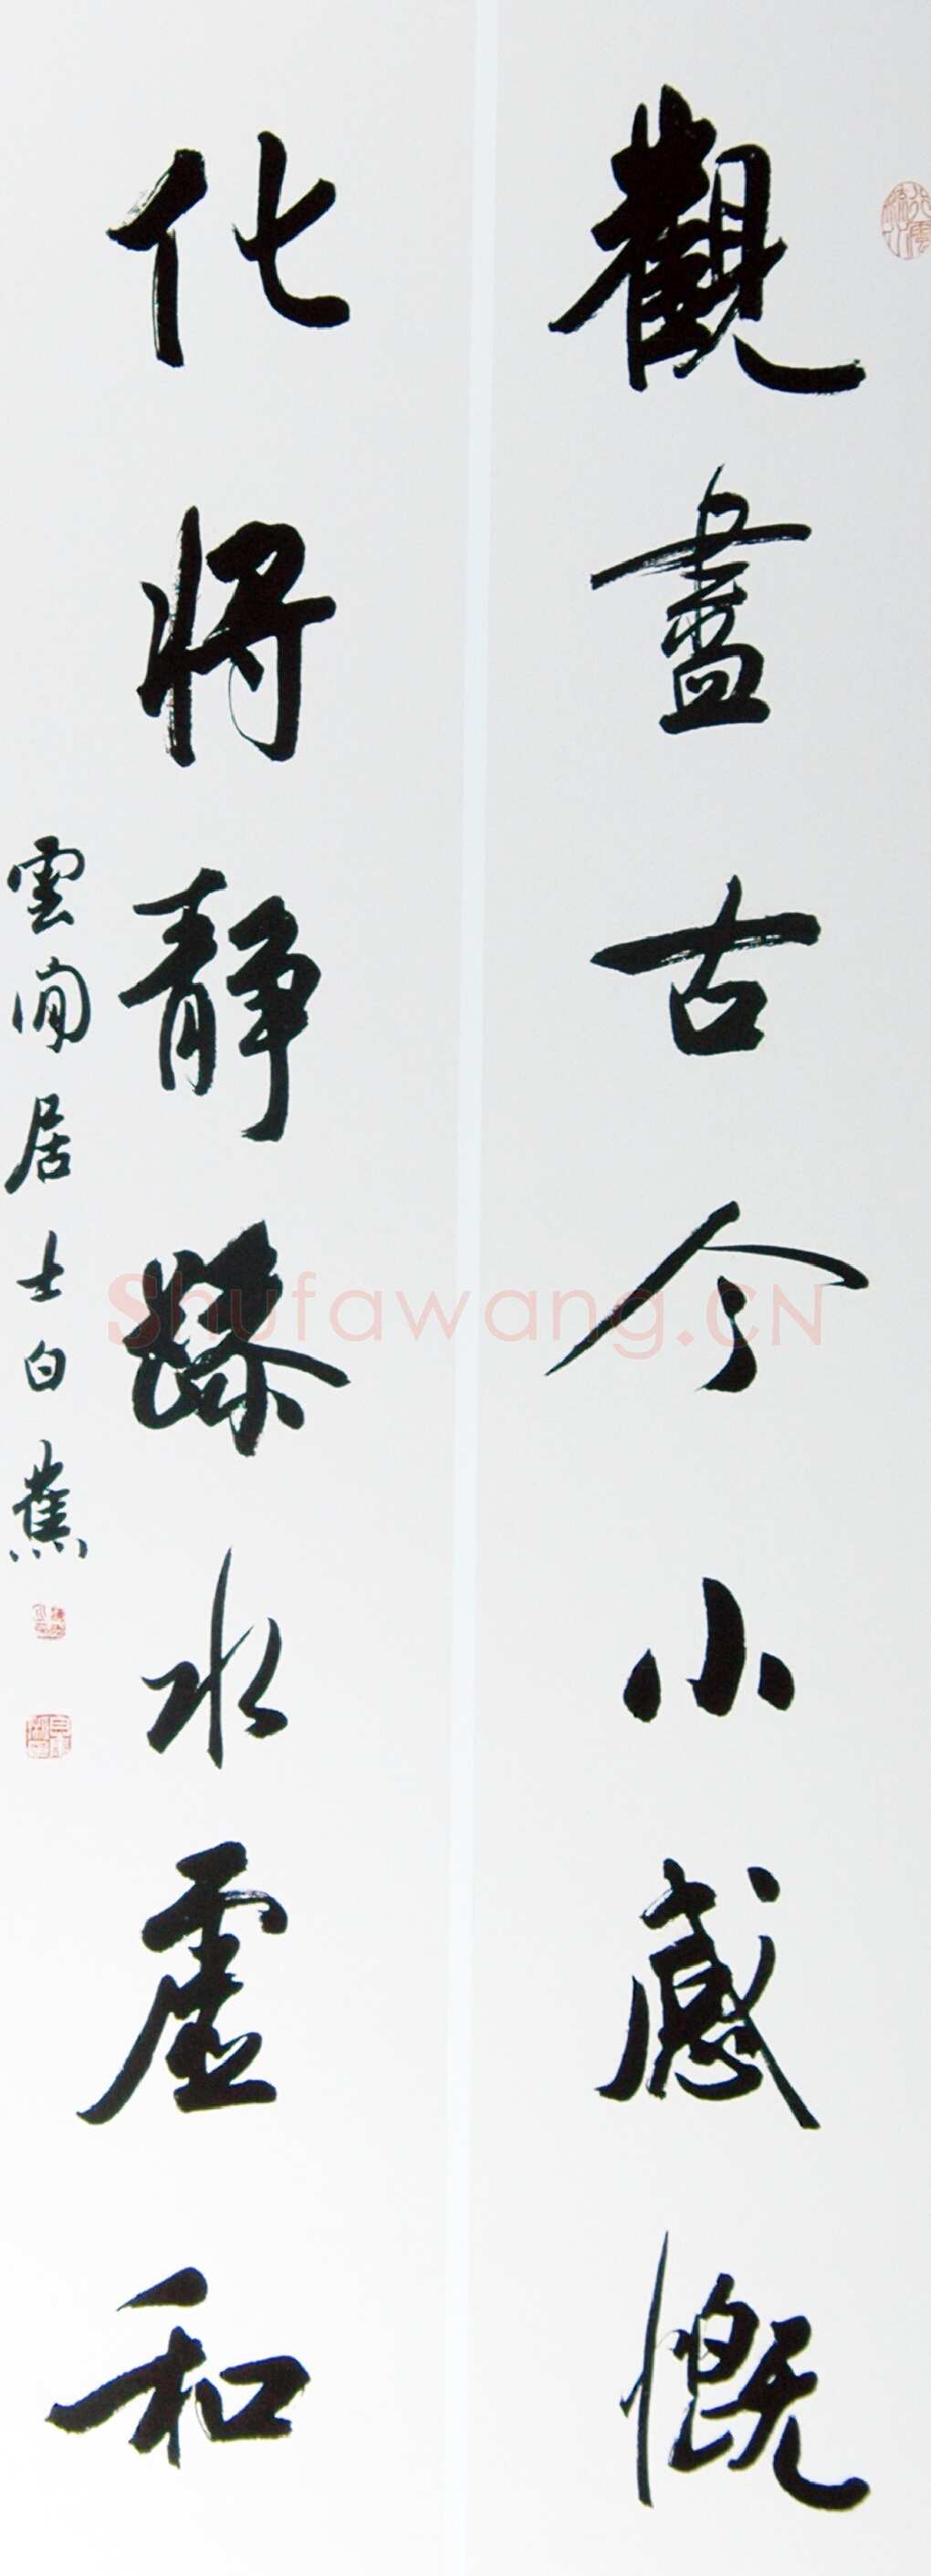 觀盡古今小感慨
化將靜躁水虛和
雲間居士白蕉
Shufawang.CN